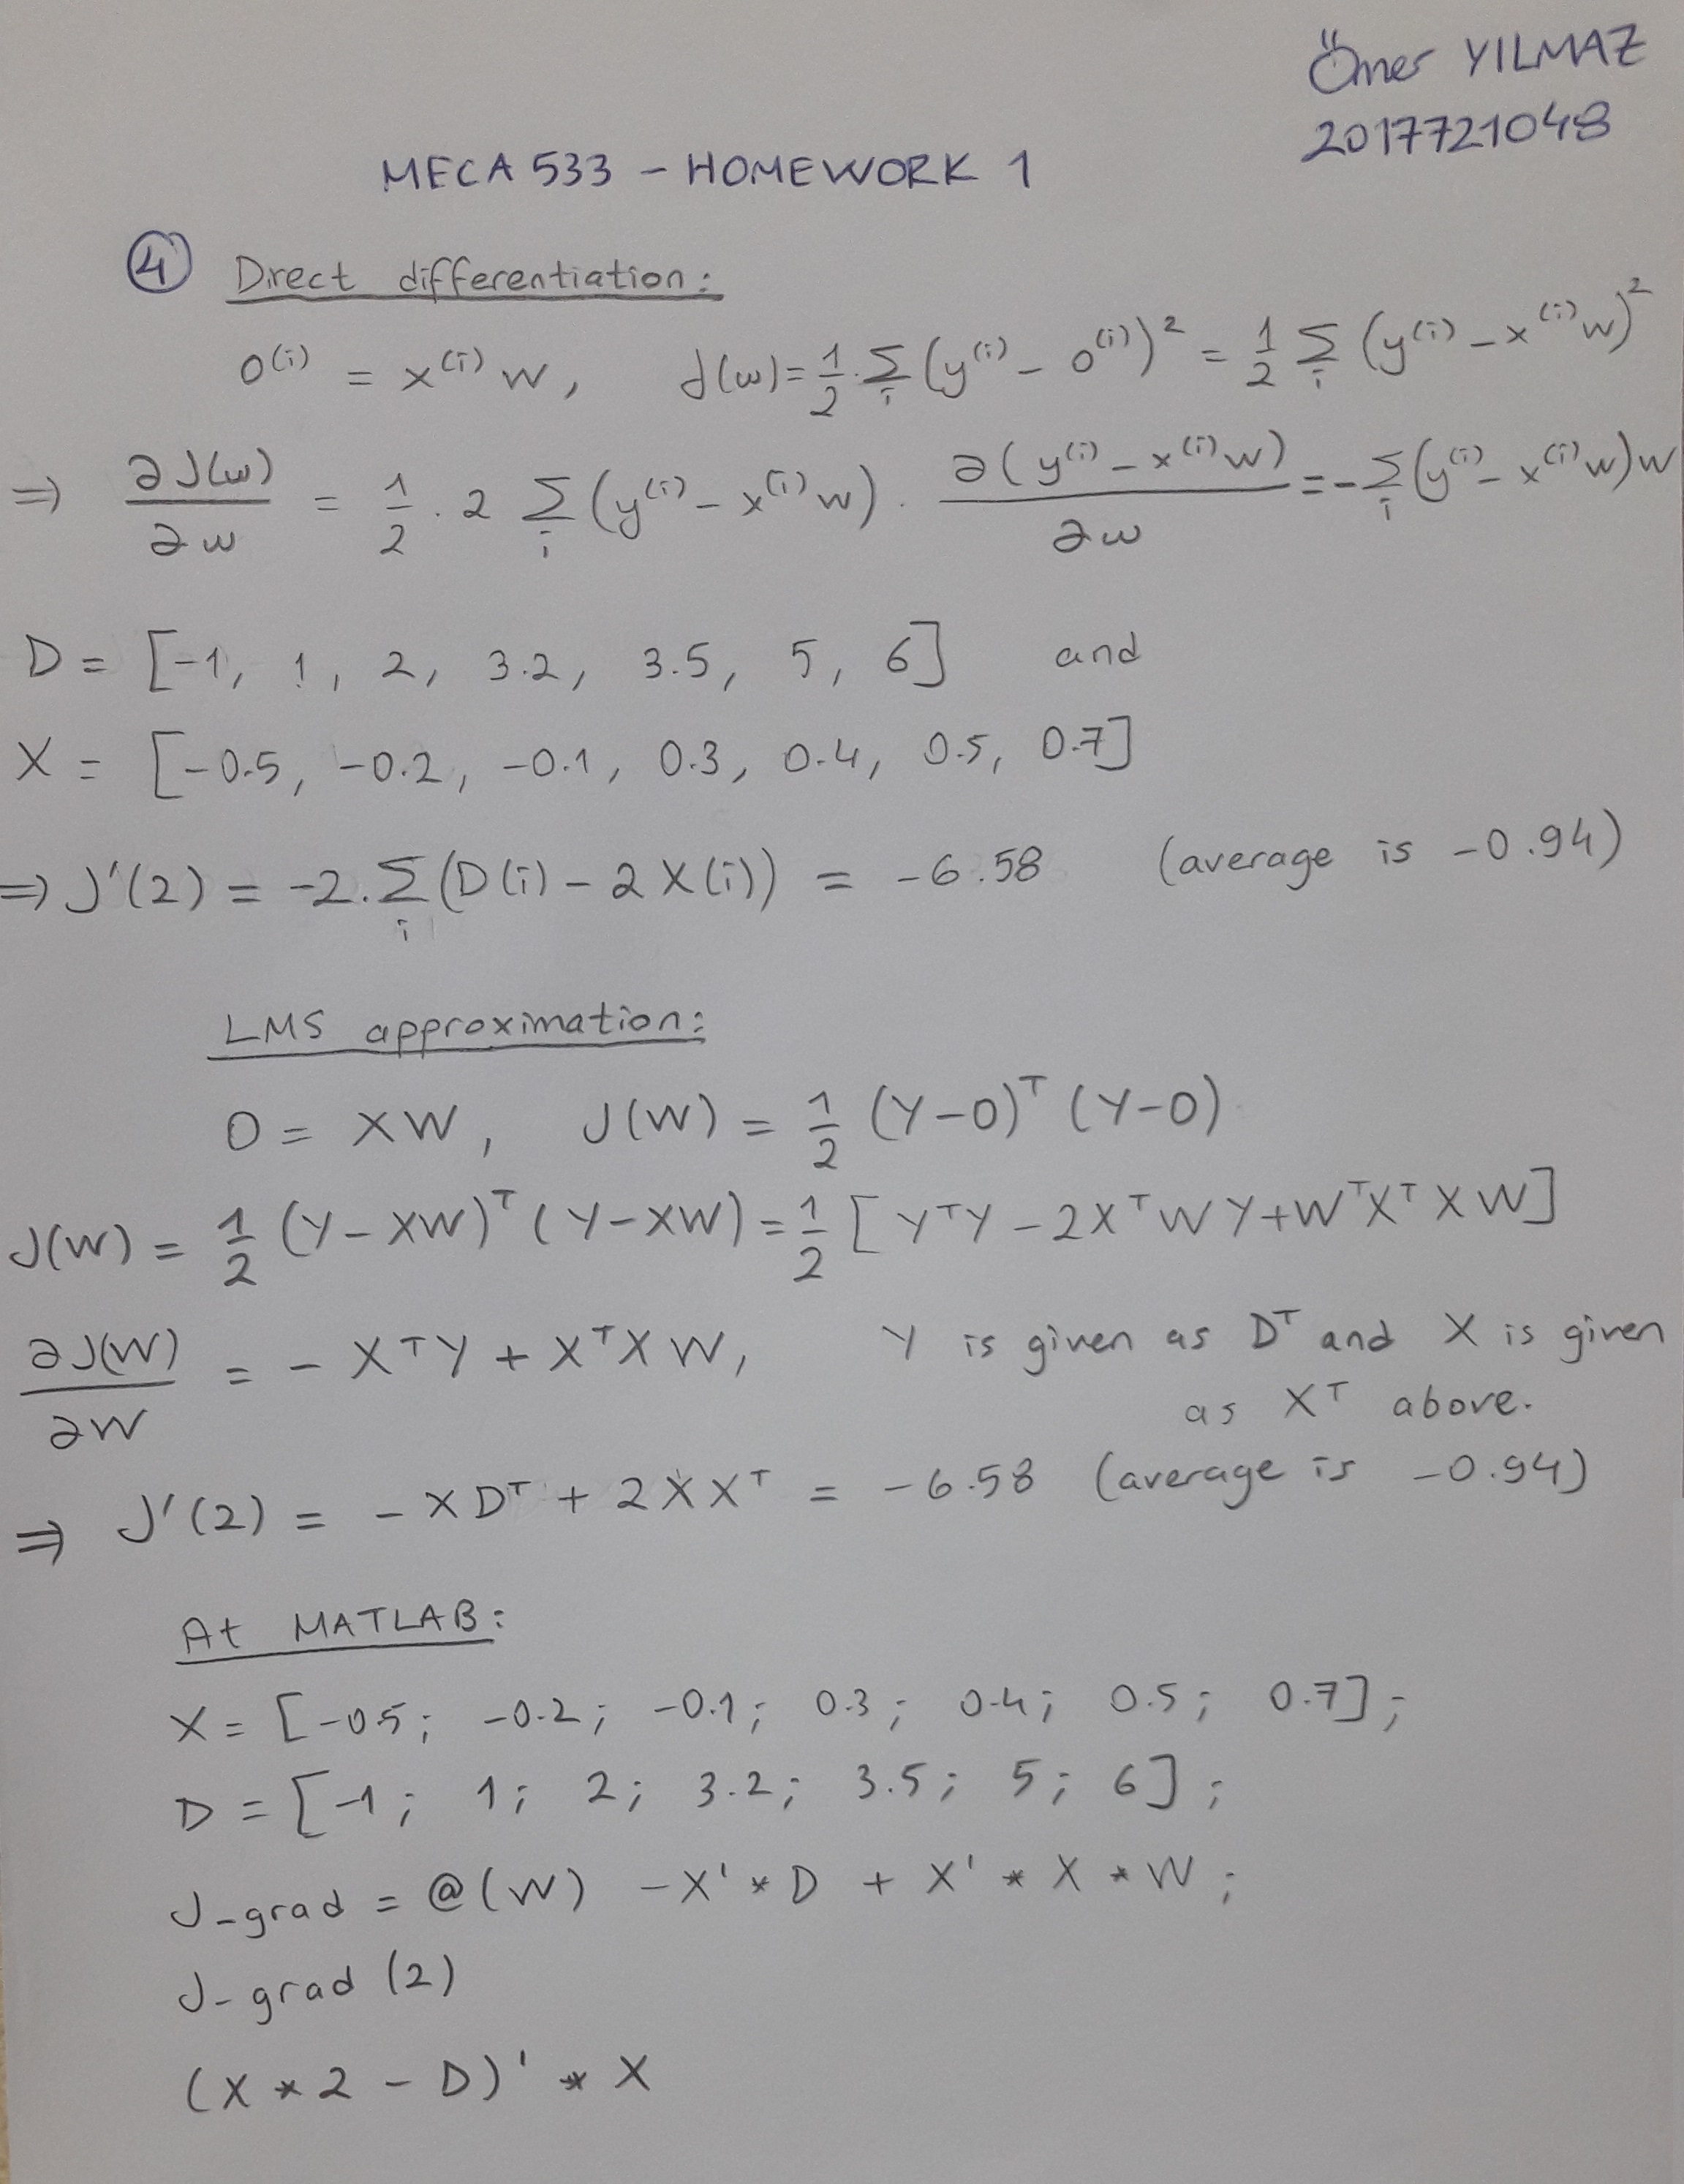 Ömer YILMAZ
2017721048
MECA 533 – HOMEWORK 1
④ Direct differentiation:
o⁽ⁱ⁾ = x⁽ⁱ⁾ w, J(w) = 1/2 . Σᵢ (y⁽ⁱ⁾ – o⁽ⁱ⁾)² = 1/2 Σᵢ (y⁽ⁱ⁾ – x⁽ⁱ⁾w)²
⇒ ∂J(w)/∂w = 1/2 . 2 Σᵢ (y⁽ⁱ⁾ – x⁽ⁱ⁾w) . ∂(y⁽ⁱ⁾ – x⁽ⁱ⁾w)/∂w = – Σᵢ (y⁽ⁱ⁾ – x⁽ⁱ⁾w)w
D = [-1, 1, 2, 3.2, 3.5, 5, 6] and
X = [-0.5, -0.2, -0.1, 0.3, 0.4, 0.5, 0.7]
⇒ J'(2) = -2. Σᵢ (D(i) – 2X(i)) = -6.58 (average is -0.94)
LMS approximation:
O = XW, J(W) = 1/2 (Y–O)ᵀ (Y–O)
J(W) = 1/2 (Y – XW)ᵀ (Y–XW) = 1/2 [YᵀY – 2XᵀWY + WᵀXᵀXW]
∂J(W)/∂W = – XᵀY + XᵀXW, Y is given as Dᵀ and X is given
as Xᵀ above.
⇒ J'(2) = – XDᵀ + 2XXᵀ = -6.58 (average is -0.94)
At MATLAB:
X = [-0.5; -0.2; -0.1; 0.3; 0.4; 0.5; 0.7];
D = [-1; 1; 2; 3.2; 3.5; 5; 6];
J_grad = @(W) -X'*D + X'*X*W;
J_grad (2)
(X*2 – D)' * X